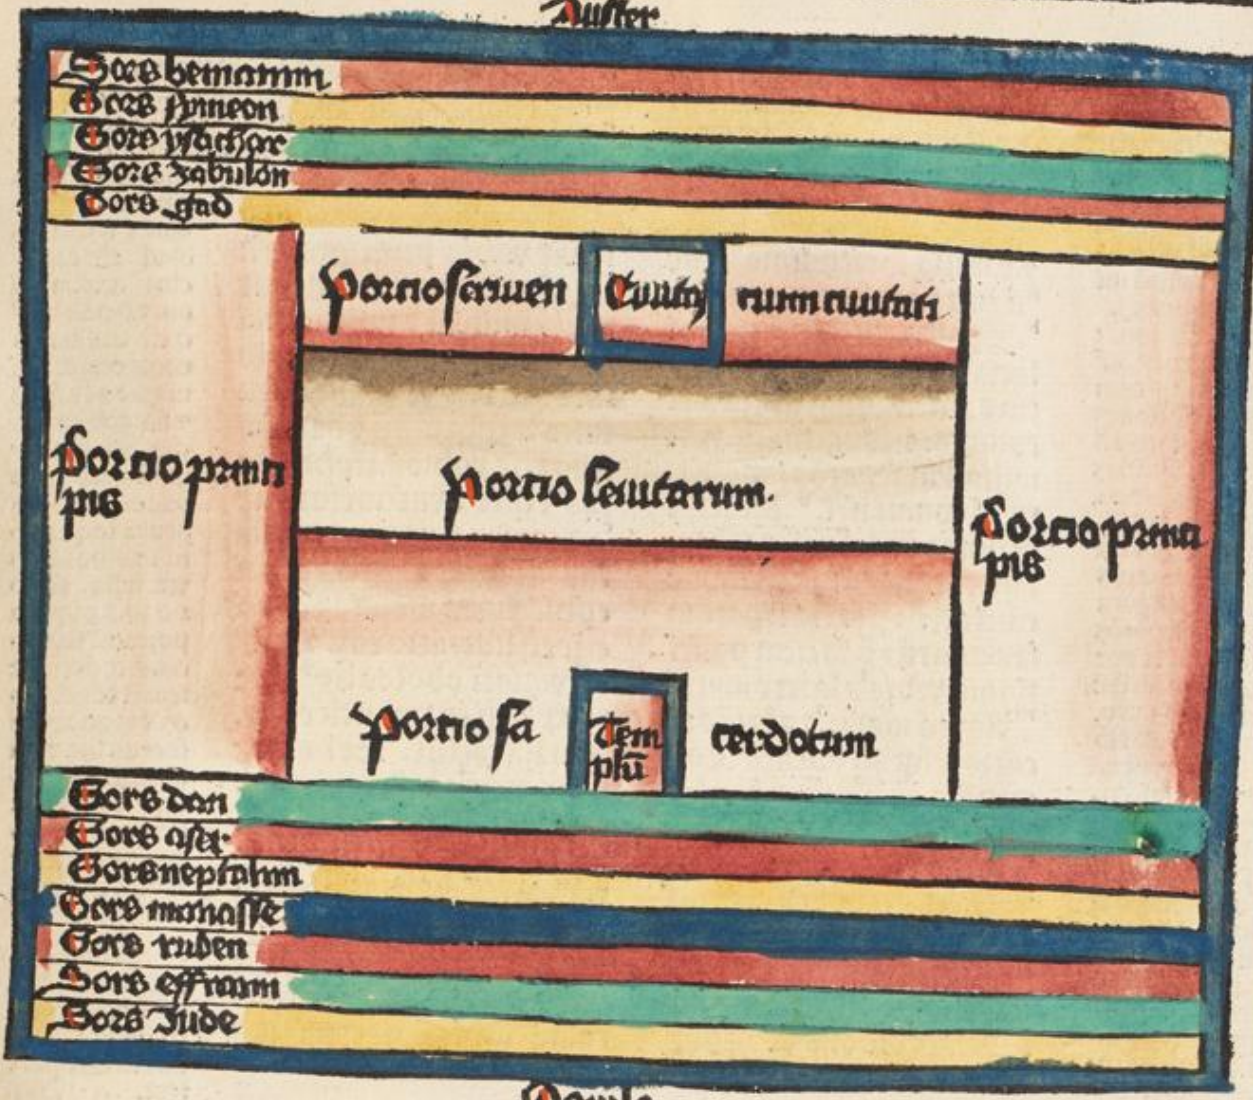 Auster
Sors beniamim
Sors symeon
Sors ysachar
Sors zabulon
Sors gad
Porcio seruien
Ciuitas
cium ciuitati
Porcio princi
pis
Porcio leuitarum.
Porcio princi
pis
Porcio sa
Tem
plū
cerdotum
Sors dan
Sors aser
Sors neptalim
Sors manasse
Sors ruben
Sors effraim
Sors Jude